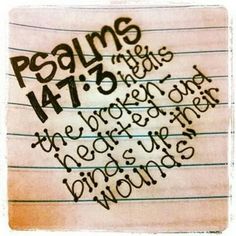 Psalms
147:3 "He
heals
the broken-
hearted and
binds up their
wounds"